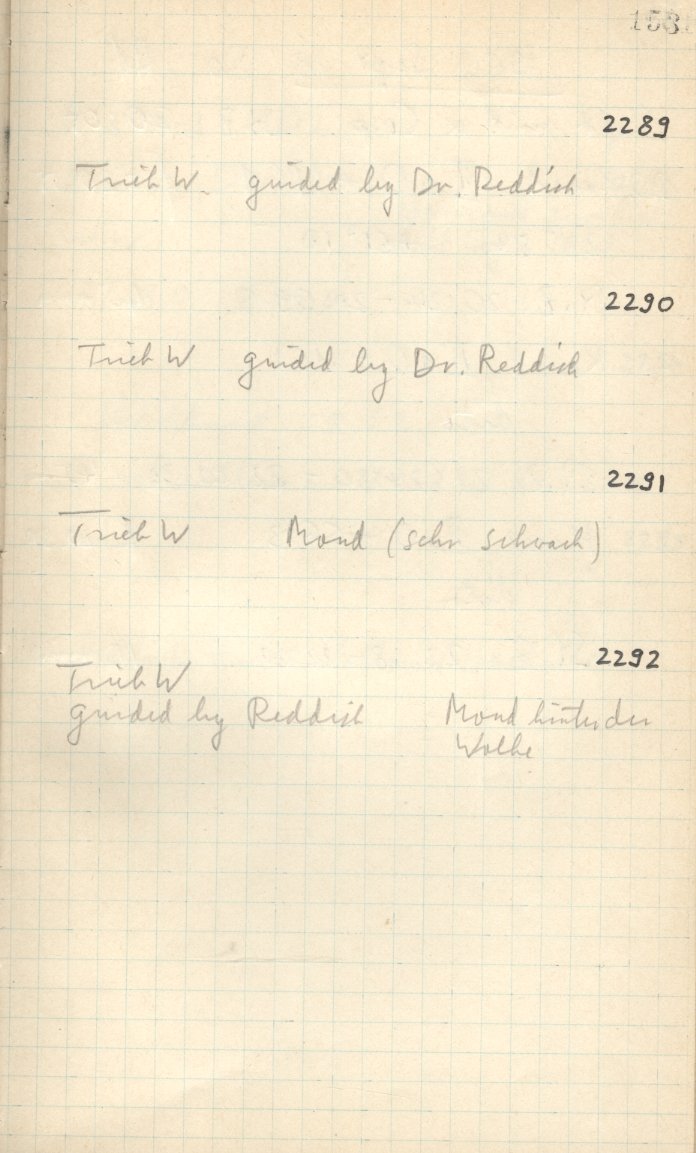 153
2289
Trieb W. guided by Dr. Reddish
2290
Trieb W guided by Dr. Reddish
2291
Trieb W Mond (sehr schwach)
2292
Trieb W
guided by Reddish Mond hinter der
Wolke